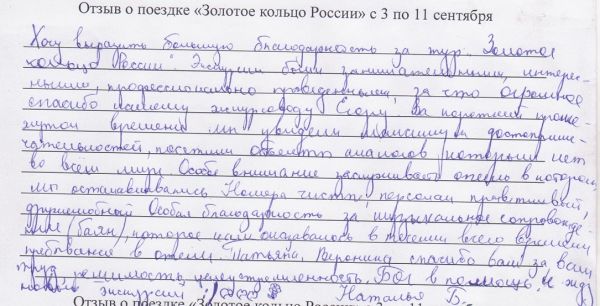 Отзыв о поездке «Золотое кольцо России» с 3 по 11 сентября
Хочу выразить большую благодарность за тур „Золотое
кольцо России". Экскурсии были занимательными, интерес-
ными, профессионально проведенными, за что огромное
спасибо нашему экскурсоводу Егору! За короткий проме-
жуток времени мы увидели максимум достоприме-
чательностей, посетили объекты аналогов которым нет
во всём мире. Особое внимание заслуживает отель в котором
мы останавливались. Номера чистые, персонал приветливый,
дружелюбный. Особая благодарность за музыкальное сопровожде-
ние (баян), которое нам оказывалось в течении всего времени
пребывания в отеле. Татьяна, Вероника спасибо вам за ваш
труд, целеустремленность, Бог в помощь, и жду
новые экскурсии! 2008 Наталья Б.
Отзыв о поездке «Золотое кольцо России»